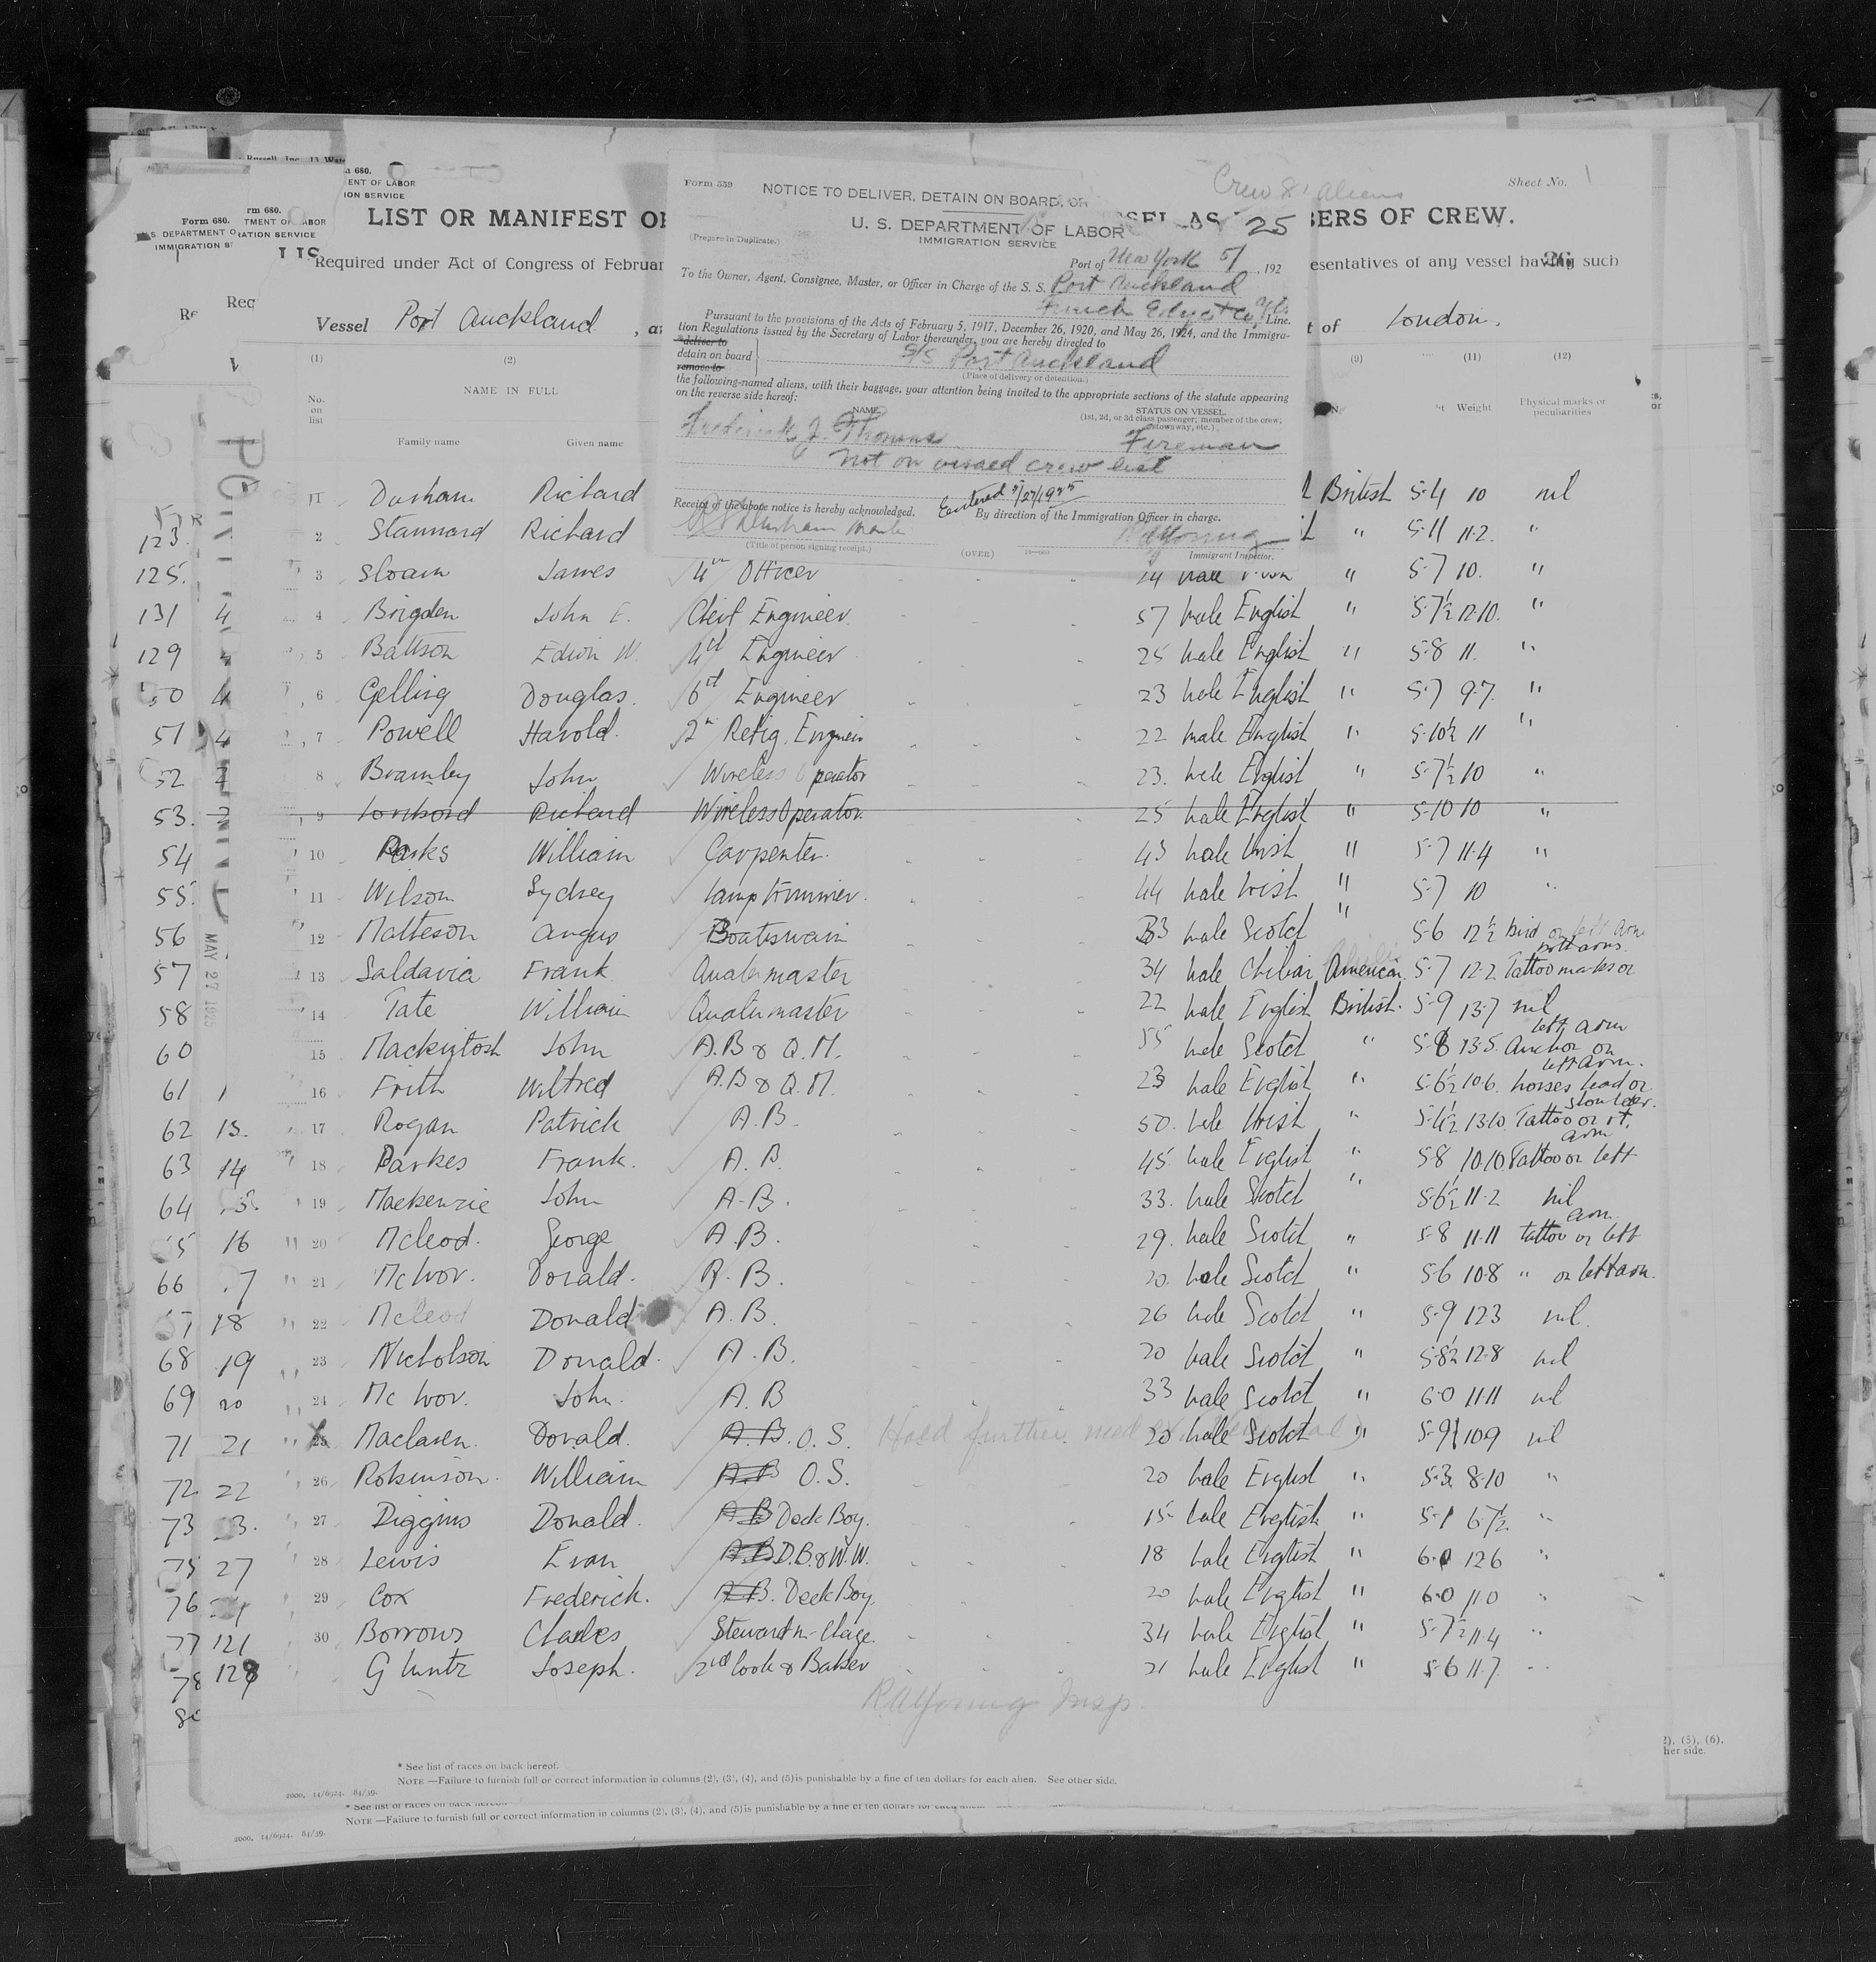 Russell, Inc., 13 Wat
Form 680.
Crew 81 Aliens
Sheet No. 1
Form 680.
Form 680.
S. DEPARTMENT O
TMENT OF LABOR
ENT OF LABOR
IMMIGRATION S
IATION SERVICE
ION SERVICE
Form 559
NOTICE TO DELIVER, DETAIN ON BOARD, OR
U. S. DEPARTMENT OF LABOR
IMMIGRATION SERVICE
(Prepare in Duplicate.)
Port of New York 5/ , 192
25
To the Owner, Agent, Consignee, Master, or Officer in Charge of the S. S. Port Auckland
Line.
Pursuant to the provisions of the Acts of February 5, 1917, December 26, 1920, and May 26, 1924, and the Immigra-
tion Regulations issued by the Secretary of Labor thereunder, you are hereby directed to
deliver to
detain on board
remove to
S/S Port Auckland
(Place of delivery or detention.)
the following-named aliens, with their baggage, your attention being invited to the appropriate sections of the statute appearing
on the reverse side hereof:
NAME.
STATUS ON VESSEL.
(1st, 2d, or 3d class passenger; member of the crew;
stowaway, etc.)
Frederick J. Thomas Fireman
not on visaed crew list
Entered 5/27/1925
Receipt of the above notice is hereby acknowledged.
By direction of the Immigration Officer in charge.
(Title of person signing receipt.)
(OVER)
RAYoung
Immigrant Inspector.
LIST OR MANIFEST OF
SSEL AS
BERS OF CREW.
Required under Act of Congress of Februar
esentatives of any vessel having such
Vessel Port Auckland , a
t of London.
(1) (2) (9) (11) (12)
NAME IN FULL
No.
on
list
Family name Given name
Weight
Physical marks or
peculiarities
1 Durham Richard British 5-4 10 nil
123. 2 Stannard Richard " 5-11 11-2. "
125. 3 Sloam James 4th Officer 24 male " 5-7 10. "
131 4 4 Brigden John E. Cheif Engineer 57 male English " 5-7½ 12-10. "
129 5 Battson Edwin W. 4th Engineer 25 male English " 5-8 11. "
50 4 6 Gelling Douglas. 6th Engineer 23 male English " 5-7 9-7. "
51 4 7 Powell Harold. 2n Refig. Engineer 22 male English " 5-10½ 11 "
52 8 Bramley John Wireless Operator 23. male English " 5-7½ 10 "
53. 9 Richard Wireless Operator 25 male English " 5-10 10 "
54 10 Parks William Carpenter. 43 male Irish " 5-7 11-4 "
55. 11 Wilson Sydney Lamp trimmer. 44 male Irish " 5-7 10 "
56 12 Matteson Angus Boatswain 33 male Scotch " 5-6 12½ bird on left arm
57 13 Saldavia Frank Quatermaster 34 male Chilian American 5-7 12-2 Tattoo marks on both arms.
58 14 Tate William Quatermaster 22 male English British. 5-9 13-7 nil
60 15 Mackintosh John A.B & Q.M. 55 male Scotch " 5-8 13-5. Anchor on left arm
61 16 Frith Wilfred A.B & Q.M. 23 male English " 5-6½ 10-6. horses head on left arm.
62 13. 17 Rogan Patrick A.B. 50. male Irish " 5-4½ 13-10 Tattoo on rt. shoulder.
63 14 18 Parkes Frank. A.B. 45. male English " 5-8 10-10 Tattoo on left arm
64 19 Mackenzie John A.B. 33. male Scotch " 5-6½ 11-2 nil
65 16 20 Mcleod. George A.B. 29. male Scotch " 5-8 11-11 tattoo on left arm
66 17 21 McIvor. Donald. A.B. 20. male Scotch " 5-6 10-8 " on left arm.
67 18 22 Mcleod Donald A.B. 26 male Scotch " 5-9 12-3 nil.
68 19 23 Nicholson Donald. A.B. 20 male Scotch " 5-8½ 12-8 nil
69 20 24 McIvor. John. A.B 33 male Scotch " 6-0 11-11 nil
71 21 25 Maclaren. Donald. A.B. O.S. Hold further med 20 male Scotch " 5-9 10-9 nil
72 22 26 Robinson. William A.B O.S. 20 male English " 5-3 8-10 "
73 23. 27 Diggins Donald. A.B Deck Boy. 15 male English " 5-1 6-7½ "
75 27 28 Lewis Evan A.B. D.B. & W.W. 18 male English " 6-0 12-6 "
76 29 Cox Frederick. A.B. Deck Boy. 20 male English " 6-0 11-0 "
77 121 30 Borrows Charles Steward in Charge. 34 male English " 5-7½ 11-4 "
78 128 Gluntz Joseph. 2nd Cook & Baker 21 male English " 5-6 11-7. "
RAYoung Insp.
MAY 27 1925
* See list of races on back hereof.
NOTE —Failure to furnish full or correct information in columns (2), (3), (4), and (5) is punishable by a fine of ten dollars for each alien. See other side.
2000, 14/6924. 84/39.
2), (5), (6),
her side.
NOTE —Failure to furnish full or correct information in columns (2), (3), (4), and (5) is punishable by a fine of ten dollars for
2000, 14/6924. 84/39.